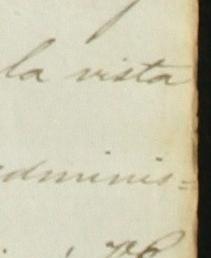 la vista
adminis=